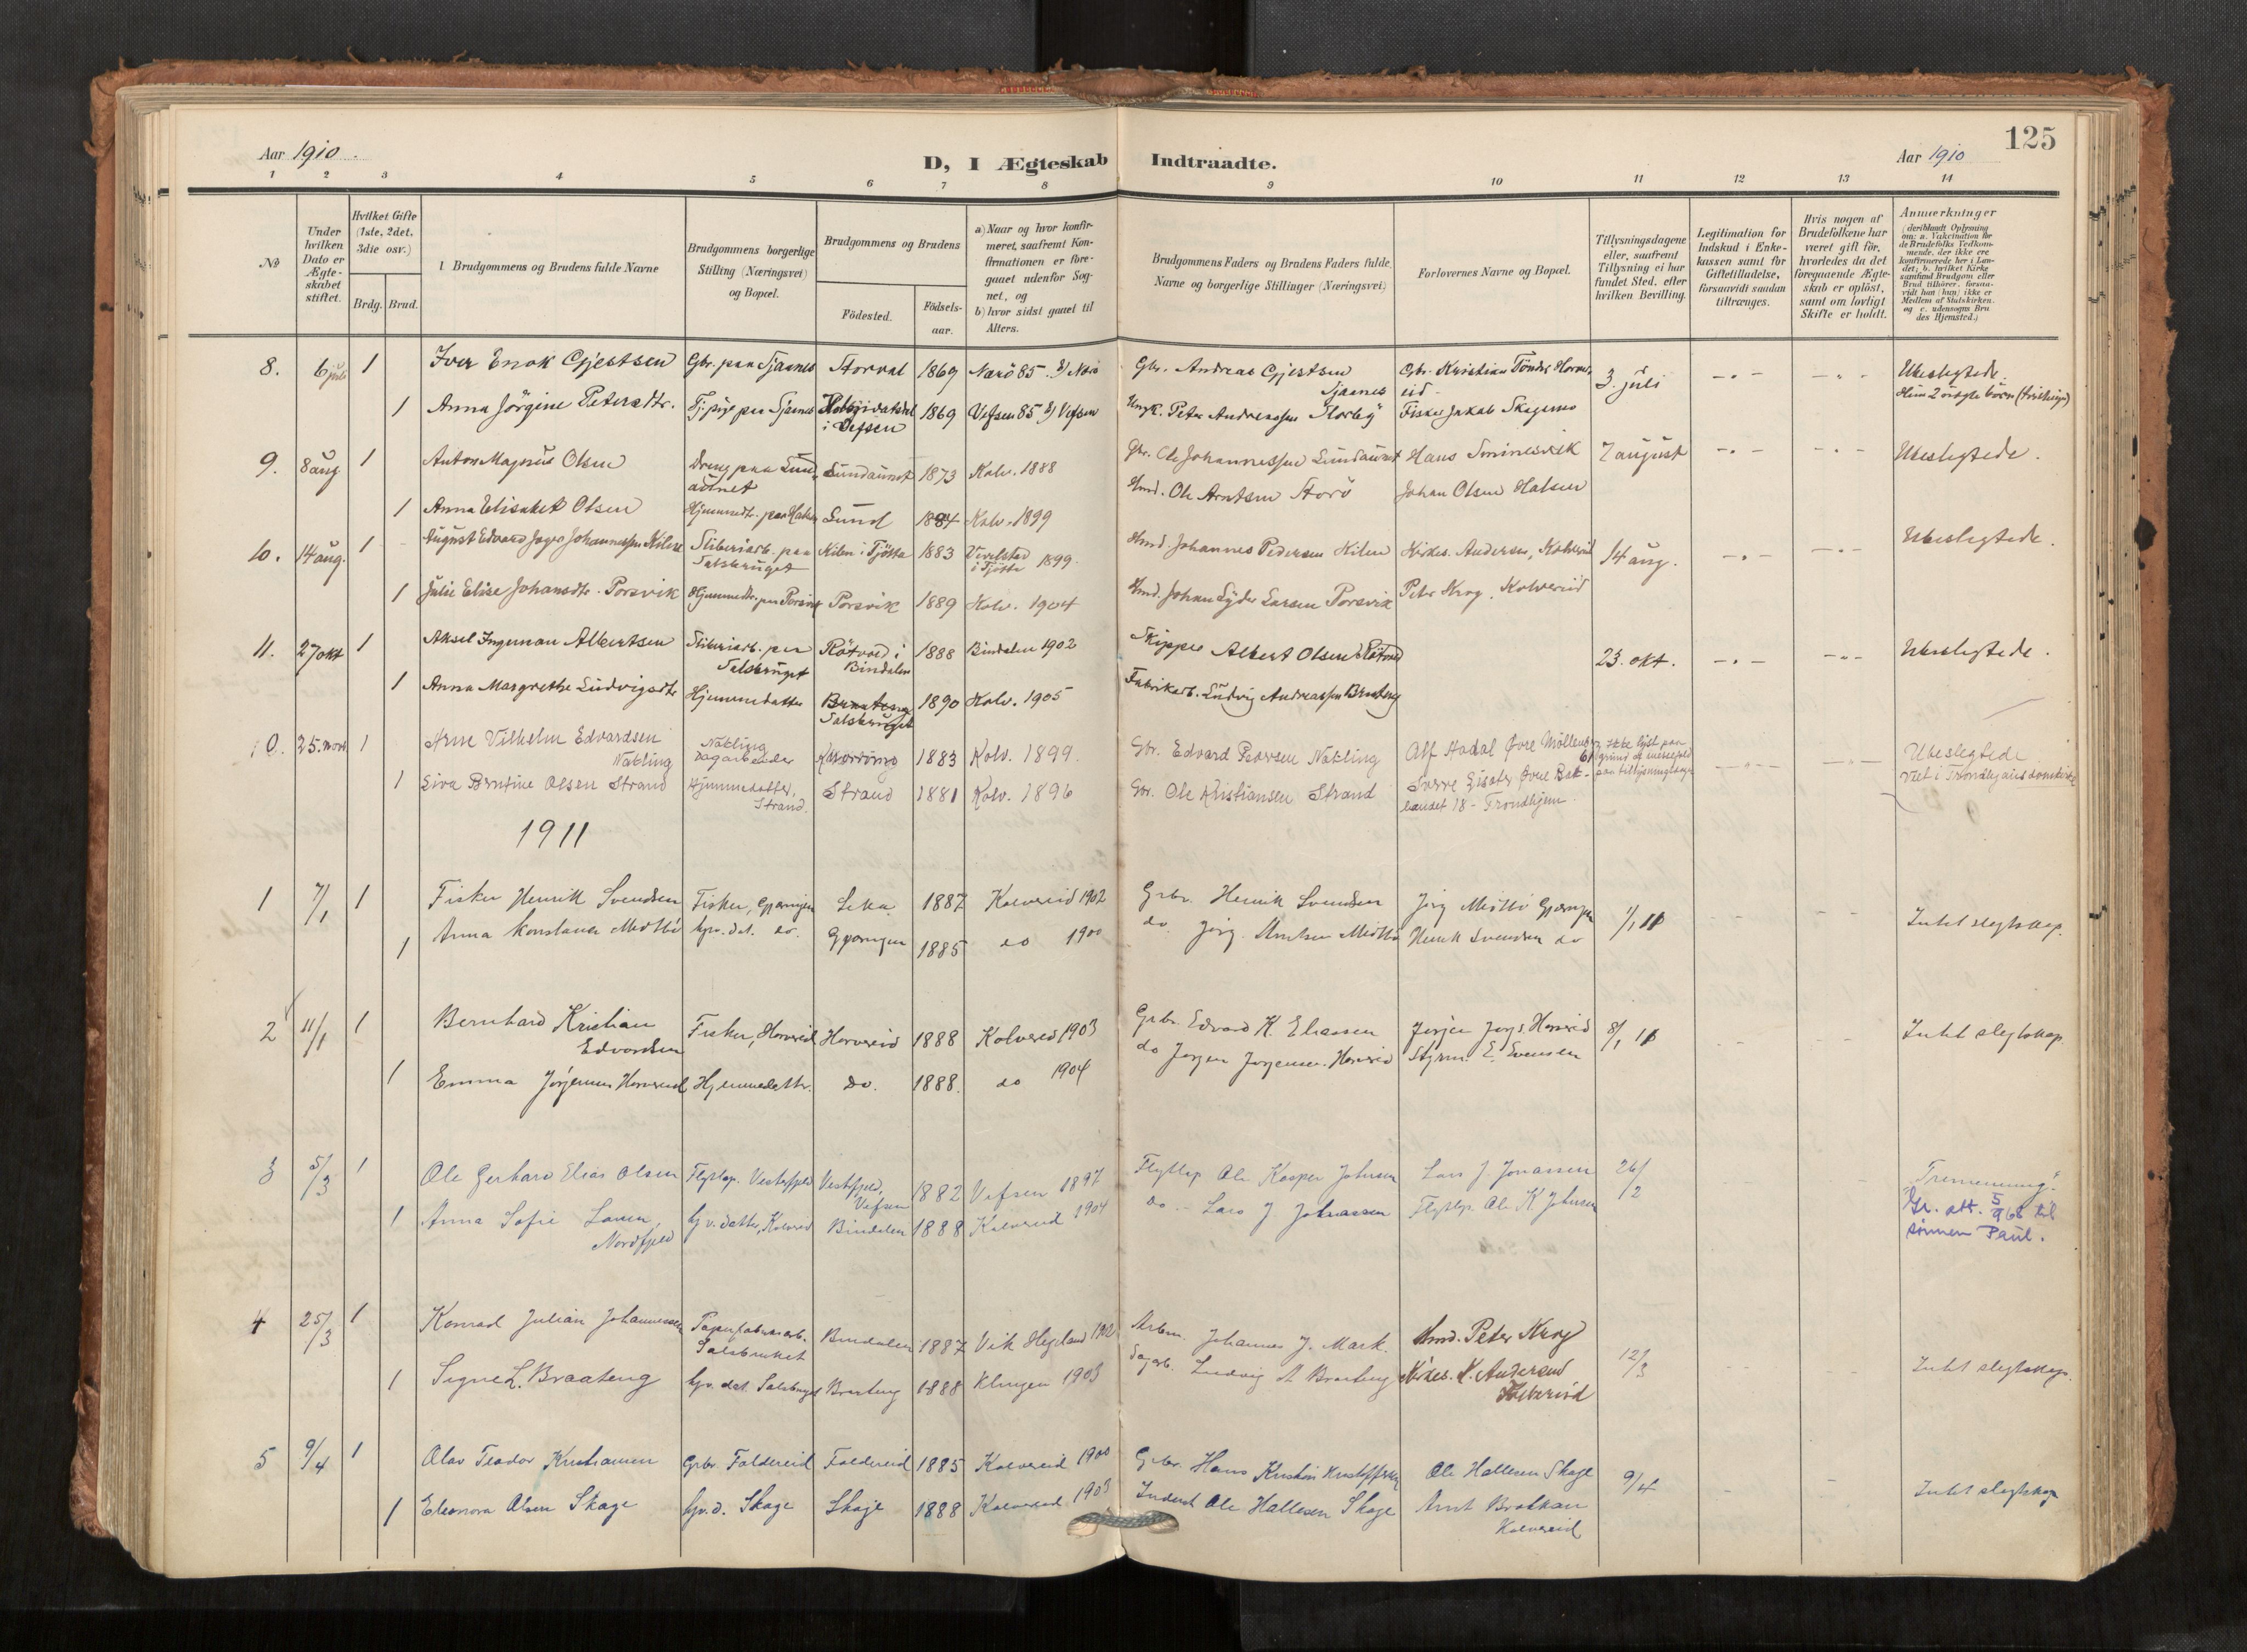 125
Aar 1910.
D, I Ægteskab Indtraadte.
Aar 1910
1 2 3 4 5 6 7 8 9 10 11 12 13 14
№
Under hvilken Dato er Ægteskabet stiftet.
Hvilket Gifte (1ste, 2det, 3die osv.)
Brdg. Brud.
Brudgommens og Brudens fulde Navne
Brudgommens borgerlige Stilling (Næringsvei) og Bopæl.
Brudgommens og Brudens
Födested.
Födselsaar.
a) Naar og hvor konfirmeret, saafremt Konfirmationen er foregaaet udenfor Sognet, og
b) hvor sidst gaaet til Alters.
Brudgommens Faders og Brudens Faders fulde Navne og borgerlige Stillinger (Næringsvei)
Forlovernes Navne og Bopæl.
Tillysningsdagene eller, saafremt Tillysning ei har fundet Sted, efter hvilken Bevilling.
Legitimation for Indskud i Enkekassen samt for Giftetilladelse, forsaavidt saadan tiltrænges.
Hvis nogen af Brudefolkene har været gift før, hvorledes da det foregaaende Ægteskab er oplöst, samt om lovligt Skifte er holdt.
Anmærkninger
(deriblandt Oplysning om: a. Vakcination for de Brudefolks Vedkommende, der ikke ere konfirmerede her i Landet; b. hvilket Kirkesamfund Brudgom eller Brud tilhörer, forsaavidt han (hun) ikke er Medlem af Statskirken. og c. udensogns Brudes Hjemsted.)
8. 6 juli 1 Iver Enok Gjestsen Gbr. paa Sjaanes Storval 1869 Nærö 85. Gbr. Andreas Gjestsen Sjaanes Gbr. Kristian Tönder Horvereid 3. juli Ubeslegtede.
1 Anna Jörgine Petersdtr. Tj. pige paa Sjaanes i Vefsen 1869 Vefsen 85 Vefsen Peter Andreassen Fisker Jakob Hun 2 uægte börn
9. 8 aug. 1 Anton Magnus Olsen Dreng paa Lundaunet Lundaunet 1873 Kolv. 1888 Gbr. Ole Johannessen Lundaunet Hans 7 august Ubeslegtede.
1 Anna Elisabet Olsen Hjemmedtr. paa Lund 1884 Kolv. 1899 Hmd. Ole Arntsen Storö Johan Olsen Halsen
10. 14 aug. 1 August Edvard Johannessen Kilen Sliberiarb. paa Salsbruget Kilen i Tjötta 1883 Vevelstad i Tjötta 1899. Hmd. Johannes Pedersen Kilen Kirkes. Andersen, Kolvereid 14 aug. Ubeslegtede.
1 Julie Elise Johansdtr. Porsvik Hjemmedtr. paa Porsvik Porsvik 1889 Kolv. 1904 Hmd. Johan Lyder Larsen Porsvik Peter Krog, Kolvereid
11. 27 okt 1 Aksel Ingeman Albertsen Sliberiarb. paa Salsbruget Rötvoed i Bindalen 1888 Bindalen 1902 Skipper Albert Olsen Rötvoed 23. okt. Ubeslegtede.
1 Anna Margrethe Ludvigsdtr Hjemmedatter Salsbruget 1890 Kolv. 1905 Fabrikarb. Ludvig Andreassen
25. nov. 1 Arne Vilhelm Edvardsen Nakling Nakling Dagarbeider 1883 Kolv. 1899. Gbr. Edvard Pedersen Nakling Alf Aadal Övre Möllenb. 61 Ikke lyst paa grund af messefald paa tillysningsdage Ubeslegtede
1 Berntine Olsen Strand Hjemmedatter, Strand. Strand 1881 Kolv. 1896 Gbr. Ole Kristiansen Strand Sverre Övre Baklandet 18 - Trondhjem Viet i Trondhjems domkirke
1911
1 7/1 1 Fisker Henrik Svendsen Fisker, Gjæringen Leka 1887 Kolvereid 1902 Grbr. Henrik Svendsen 1/1 11 Intet slegtskap.
1 Anna Konstance do. 1885 do 1900 do. Henrik Svendsen do
2 11/1 1 Bernhard Kristian Edvardsen Fisker, Horvereid Horvereid 1888 Kolvereid 1903 Grbr. Edvard K. Eliassen 8/1 11 Intet slegtskap.
1 Emma Jörgensen Horvereid Hjemmedatter. do. 1888. do 1904 do Jörgen Jörgensen Horvereid Styrm. E. Svensen
3 5/3 1 Ole Gerhard Elias Olsen Flytlap. Vestfjeld Vestfjeld, Vefsen 1882 Vefsen 1897 Flytlap Ole Kasper Johnsen Lars J. Jonassen 26/2 "Tremenning."
1 Anna Sofie Larsen, Nordfjeld Kolvereid Bindalen 1888 Kolvereid 1904 do - Lars J Johnassen Flytlap. Ole K Johnsen Gr. att. 5/9 68 til sønnen Paul.
4 25/3 1 Konrad Julian Johannessen Salsbruket Bindalen 1887 Vik Helgeland 1902 Arbm. Johannes J. Mark. Hmd. Peter Krog 12/3 Intet slegtskap.
1 Signe L. Braateng Braateng 1888 Klingen 1903 Ludvig A Braateng Kirkes. K. Andersen Kolvereid
5 9/4 1 Olav Teodor Kristiansen Grbr. Foldereid Foldereid 1885 Kolvereid 1900 Grbr. Hans Kristian Ole Hallesen Skage 9/4 Intet slegtskap
1 Eleonora Olsen Skage Skage Skage 1888 Kolvereid 1903 Inderst Ole Hallesen Skage Arnt Kolvereid